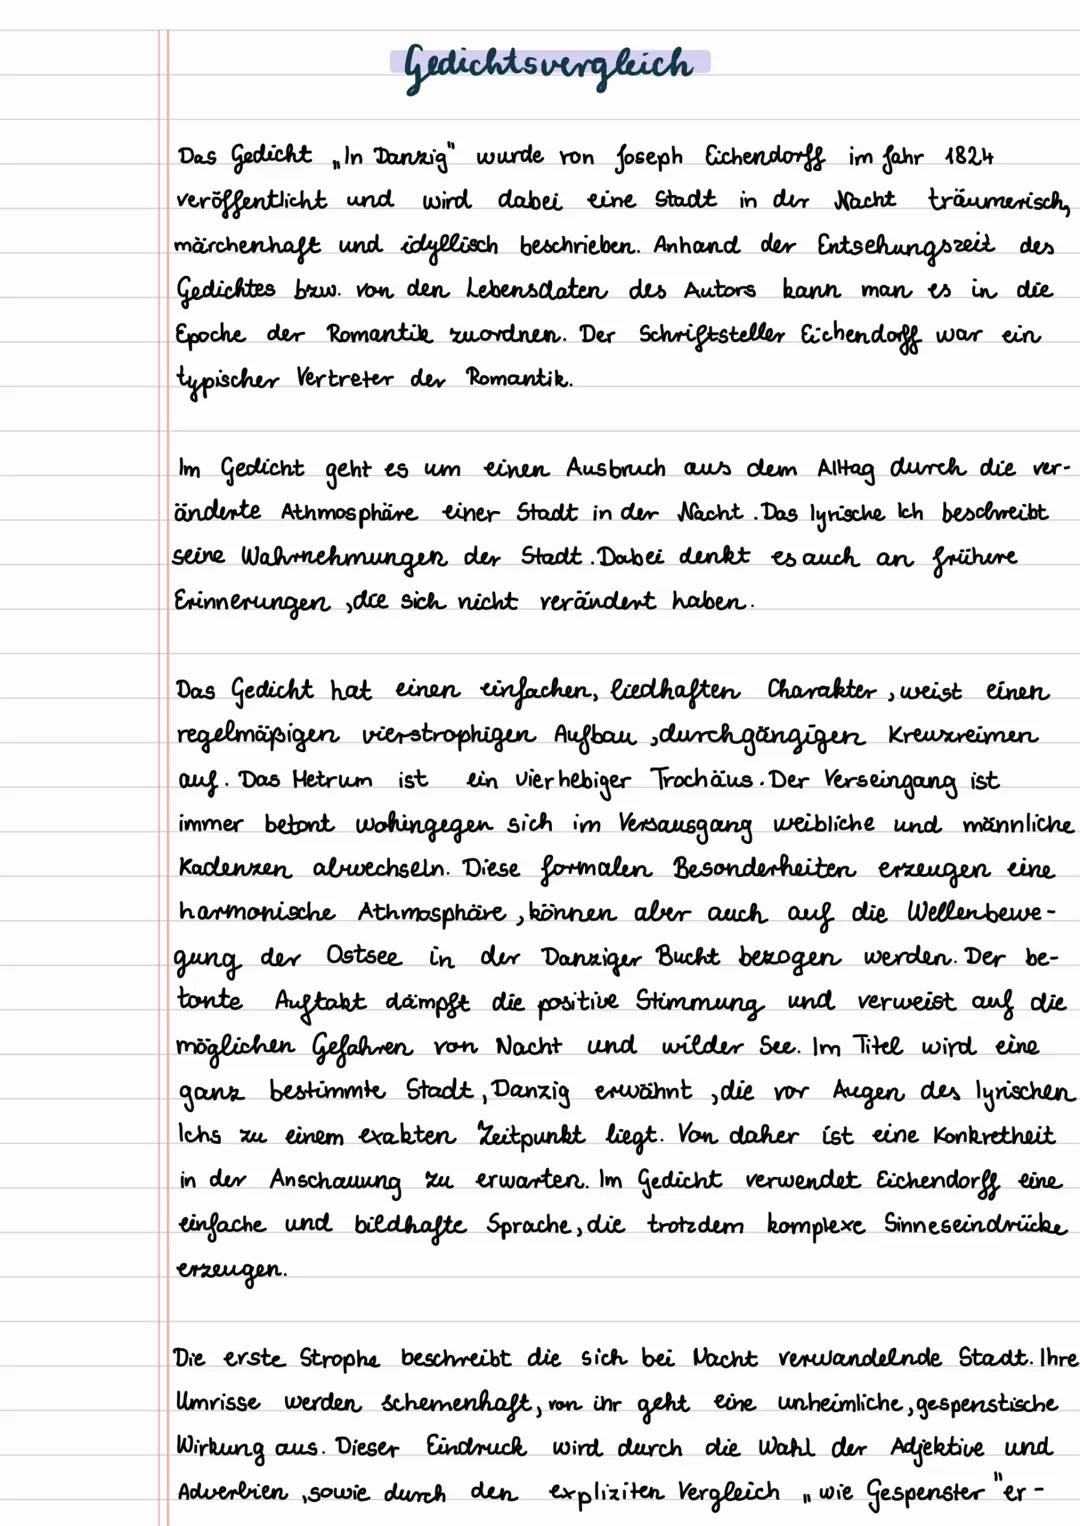 Gedichtsvergleich
Das Gedicht „In Danzig" wurde von Joseph Eichendorff im Jahr 1824
veröffentlicht und wird dabei eine Stadt in der Nacht träumerisch,
märchenhaft und idyllisch beschrieben. Anhand der Entsehungszeit des
Gedichtes bzw. von den Lebensdaten des Autors kann man es in die
Epoche der Romantik zuordnen. Der Schriftsteller Eichendorff war ein
typischer Vertreter der Romantik.
Im Gedicht geht es um einen Ausbruch aus dem Alltag durch die ver-
änderte Athmosphäre einer Stadt in der Nacht. Das lyrische Ich beschreibt
seine Wahrnehmungen der Stadt. Dabei denkt es auch an frühere
Erinnerungen, die sich nicht verändert haben.
Das Gedicht hat einen einfachen, liedhaften Charakter, weist einen
regelmäßigen vierstrophigen Aufbau, durchgängigen Kreuzreimen
auf. Das Metrum ist ein vierhebiger Trochäus. Der Verseingang ist
immer betont wohingegen sich im Versausgang weibliche und männliche
Kadenzen abwechseln. Diese formalen Besonderheiten erzeugen eine
harmonische Athmosphäre, können aber auch auf die Wellenbewe-
gung der Ostsee in der Danziger Bucht bezogen werden. Der be-
tonte Auftakt dämpft die positive Stimmung und verweist auf die
möglichen Gefahren von Nacht und wilder See. Im Titel wird eine
ganz bestimmte Stadt, Danzig erwähnt, die vor Augen des lyrischen
Ichs zu einem exakten Zeitpunkt liegt. Von daher ist eine Konkretheit
in der Anschauung zu erwarten. Im Gedicht verwendet Eichendorff eine
einfache und bildhafte Sprache, die trotzdem komplexe Sinneseindrücke
erzeugen.
Die erste Strophe beschreibt die sich bei Nacht verwandelnde Stadt. Ihre
Umrisse werden schemenhaft, von ihr geht eine unheimliche, gespenstische
Wirkung aus. Dieser Eindruck wird durch die Wahl der Adjektive und
Adverbien, sowie durch den expliziten Vergleich „wie Gespenster" er-